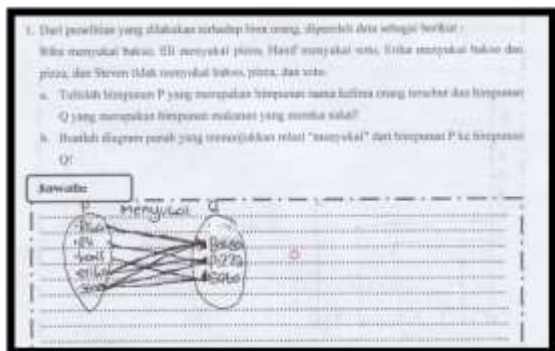 1. Dari penelitian yang dilakukan terhadap lima orang, diperoleh data sebagai berikut :
Rika menyukai bakso, Eli menyukai pizza, Hanif menyukai soto, Erika menyukai bakso dan
pizza, dan Steven tidak menyukai bakso, pizza, dan soto.
a. Tulislah himpunan P yang merupakan himpunan nama kelima orang tersebut dan himpunan
Q yang merupakan himpunan makanan yang mereka sukai!
b. Buatlah diagram panah yang menunjukkan relasi "menyukai" dari himpunan P ke himpunan
Q!
Jawab:
P Menyukai Q
Bakso
Pizza
Soto